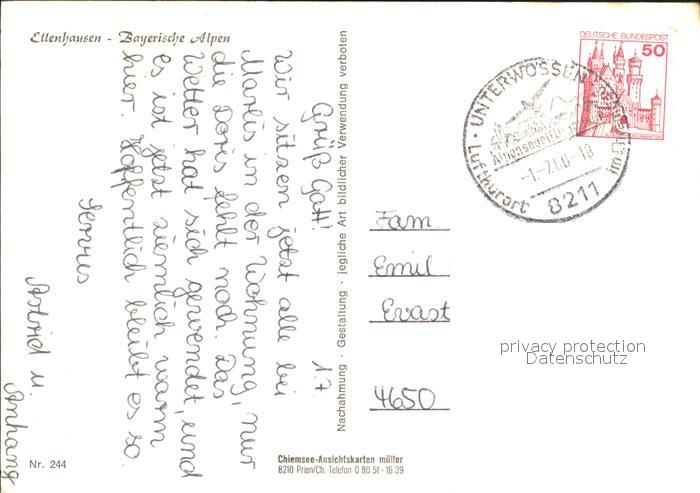 Ettenhausen - Bayerische Alpen
Grüß Gott! 1.7.
Wir sitzen jetzt alle bei
Marlis in der Wohnung, nur
die Doris fehlt noch. Das
Wetter hat sich gewendet, und
es ist jetzt ziemlich warm
hier. Hoffentlich bleibt es so.
Servus
Astrid u.
Anhang
Nachahmung · Gestaltung · jegliche Art bildlicher Verwendung verboten
DEUTSCHE BUNDESPOST
50
UNTERWÖSSEN
Alpensegelflug
-1.-7.80-18
Luftkurort
8211
Fam.
Emil
Evast
4650
privacy protection
Datenschutz
Nr. 244
Chiemsee-Ansichtskarten müller
8210 Prien/Ch. Telefon 0 80 51 - 16 39